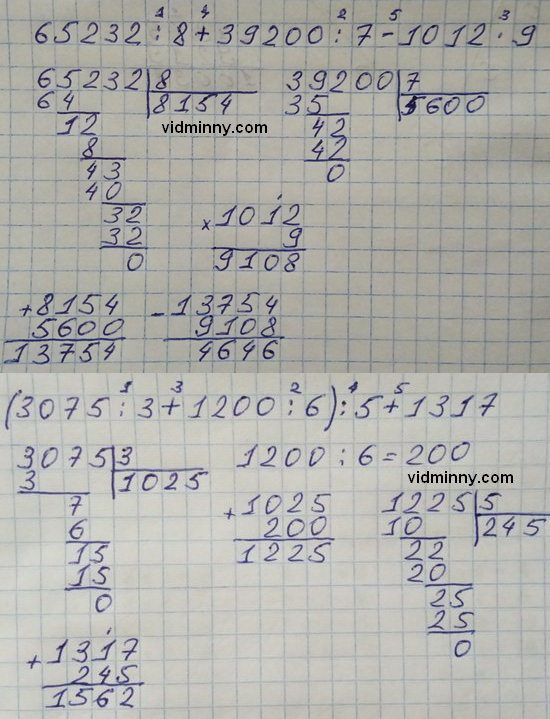 65232 : 8 + 39200 : 7 - 1012 · 9
1 4 2 5 3
65232 | 8
64 8154
12
8
43
40
32
32
0
39200 | 7
35 5600
42
42
0
vidminny.com
× 1012
9
9108
+ 8154
5600
13754
- 13754
9108
4646
(3075 : 3 + 1200 : 6) : 5 + 1317
1 3 2 4 5
3075 | 3
3 1025
7
6
15
15
0
1200 : 6 = 200
vidminny.com
+ 1025
200
1225
1225 | 5
10 245
22
20
25
25
0
+ 1317
245
1562